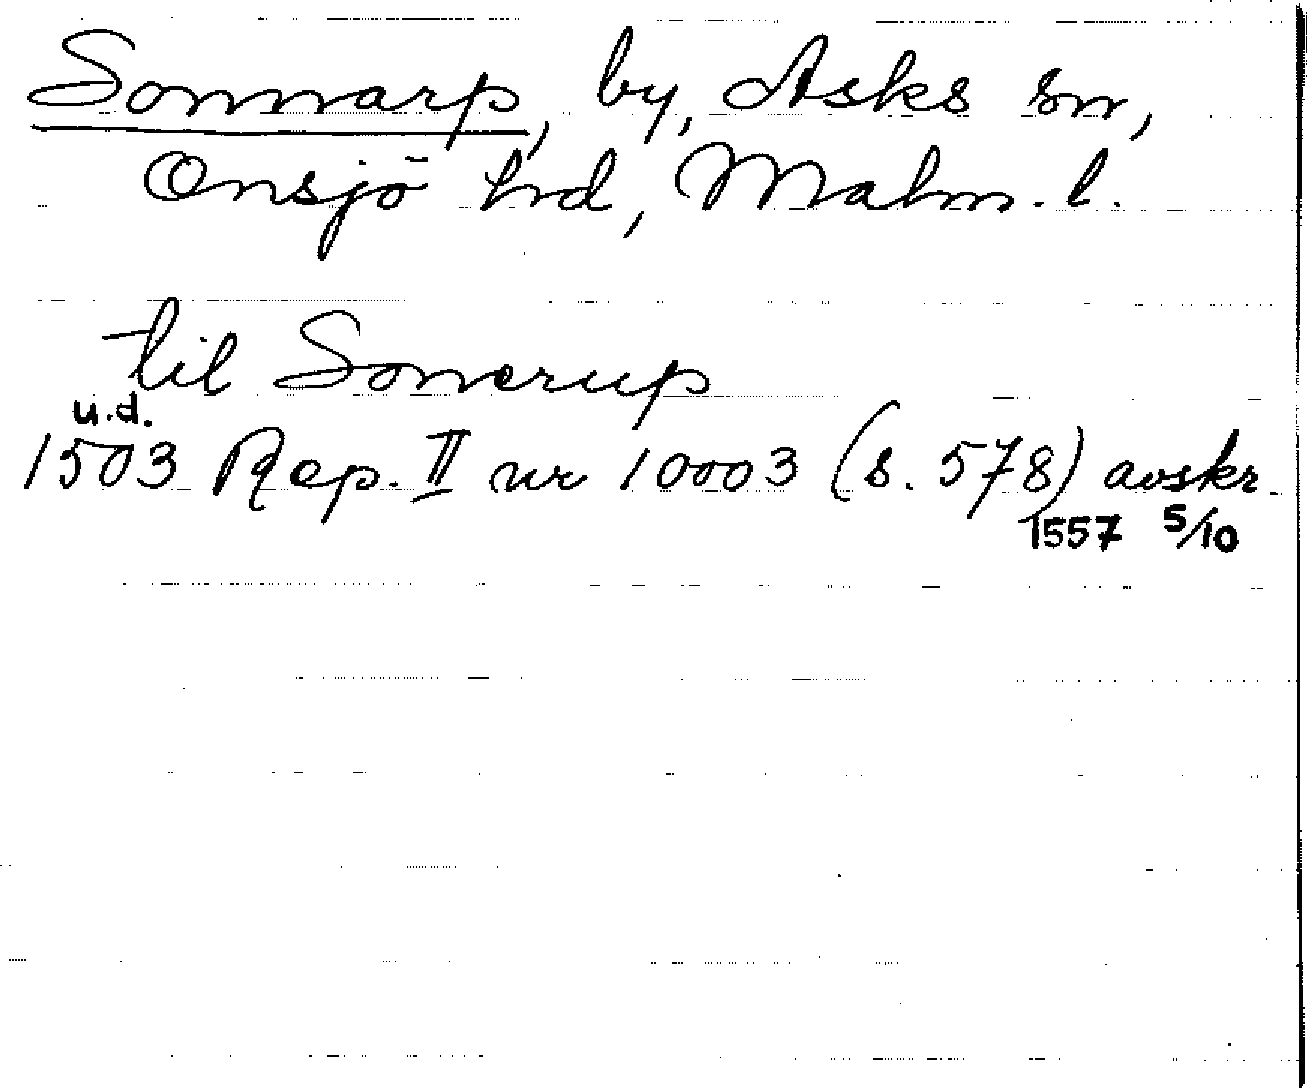 Sonnarp, by, Asks sn,
Onsjö hrd, Malm. l.
til Sonerup
u.d.
1503 Rep. II nr 10003 (s. 578) avskr.
1557 5/10